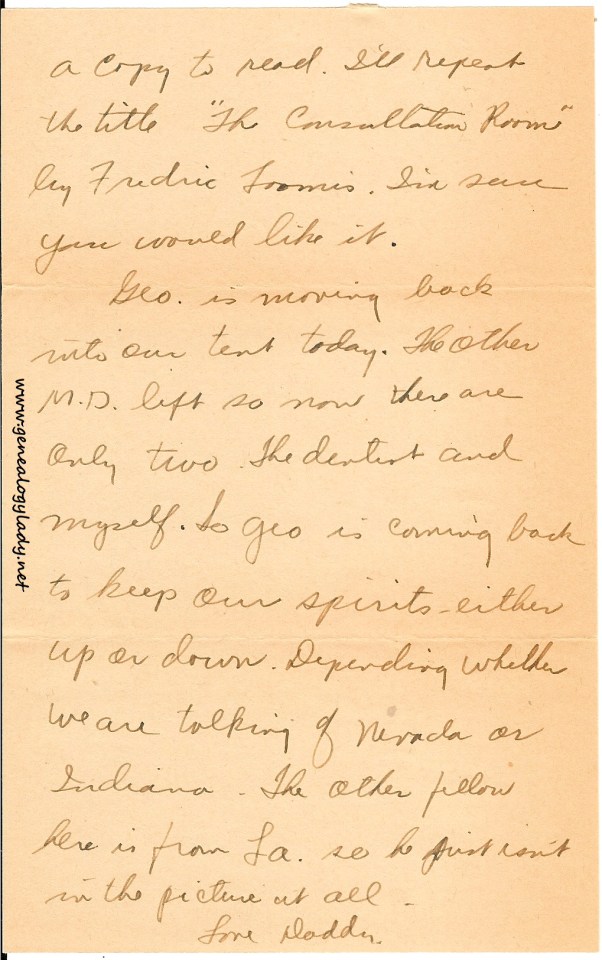 a copy to read. I'll repeat
the title "The Consultation Room"
by Fredric Loomis. I'm sure
you would like it.
Geo. is moving back
into our tent today. The other
M.D. left so now there are
only two. The dentist and
myself. So Geo is coming back
to keep our spirits - either
up or down. Depending whether
we are talking of Nevada or
Indiana - The other fellow
here is from La. so he just isn't
in the picture at all -
Love Daddy.
www.genealogylady.net